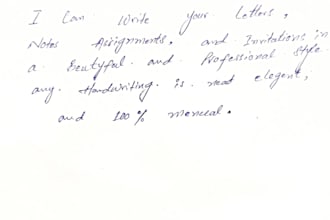 I Can Write your Letters,
Notes Assignments, and Invitations in
a Beutyful and Professional Style.
any Handwriting is neat elegent,
and 100% menual.